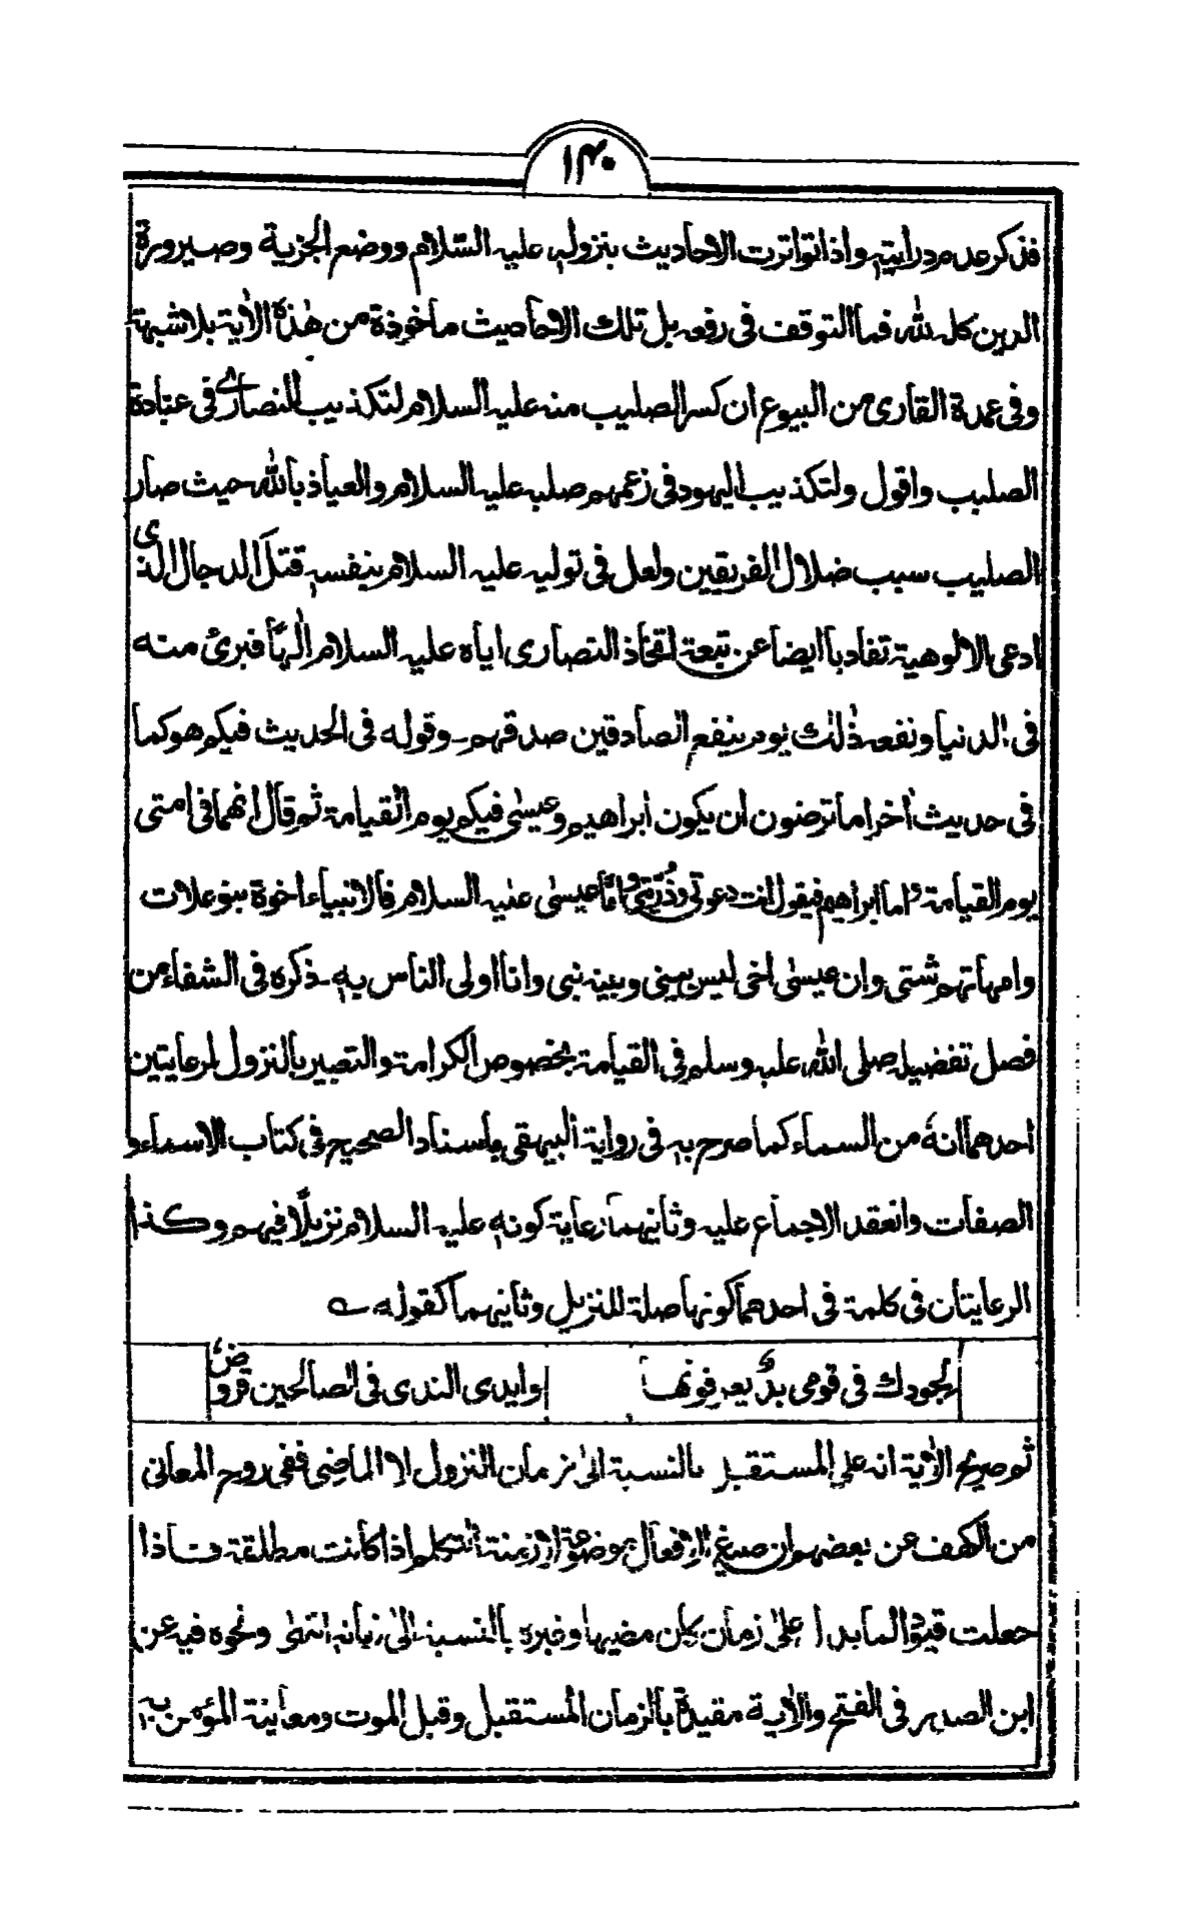 ۱۴۰
فذكر عدم درايته واذا تواترت الاحاديث بنزوله عليه السّلام ووضع الجزية وصيرورة
الدين كله لله فما التوقف فى رفعه بل تلك الاحاديث مأخوذة من هٰذه الاٰية بلا شبهة
وفى عمدة القارى من البيوع ان كسر الصليب منه عليه السلام لتكذيب النصارى فى عبادة
الصليب واقول ولتكذيب اليهود فى زعمهم صلبه عليه السلام والعياذ بالله حيث صار
الصليب سبب ضلال الفريقين ولعل فى توليه عليه السلام بنفسه قتل الدجال الذى
ادعى الالوهية تفاديا ايضا عن تبعة اتخاذ النصارى اياه عليه السلام الٰهًا فبرئ منه
فى الدنيا ونفعه ذٰلك يوم ينفع الصادقين صدقهم ـ وقوله فى الحديث فيكم هو كما
فى حديث اٰخر اما ترضون ان يكون ابراهيم وعيسٰى فيكم يوم القيامة ثم قال انهما فى امتى
يوم القيامة واما ابراهيم فيقول انت دعوتى وذُرّيتى وامّا عيسٰى عليه السلام فالانبياء اخوة بنو علات
وامهاتهم شتى وان عيسٰى اخى ليس بينى وبينه نبى وانا اولى الناس به ـ ذكره فى الشفاء من
فصل تفضيله صلى الله عليه وسلم فى القيامة بخصوص الكرامة والتعبير بالنزول لرعايتين
احدهما انهٗ من السماء كما صرح به فى رواية البيهقى باسناد الصحيح فى كتاب الاسماء و
الصفات وانعقد الاجماع عليه وثانيهما رعاية كونه عليه السلام نزيلًا فيهم وكذا
الرعايتان فى كلمة فى احدهما كونها صلة للنزيل وثانيهما كقوله ؎
لجودك فى قومى يدٌ يعرفونها وايدى الندى فى الصالحين قروض
ثم صريح الاٰية انه على المستقبل بالنسبة الى زمان النزول لا الماضى ففى روح المعانى
من الكهف عن بعضهم ان صيغ الافعال موضوعة لازمنة التكلم اذا كانت مطلقة فاذا
جعلت قيودا لما يدل على زمان كان مضيها وغيره بالنسبة الى زمانه انتهٰى ونحوه فيه عن
ابن الصدر فى الفتح والاٰية مقيدة بالزمان المستقبل وقبل الموت ومعاينة المؤمن به